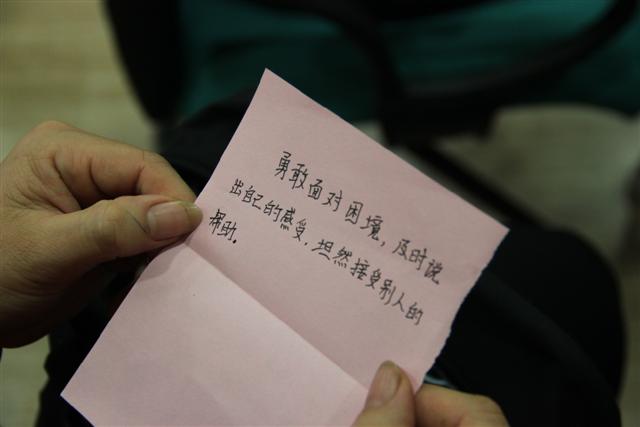 勇敢面对困境，及时说
出自己的感受，坦然接受别人的
帮助。